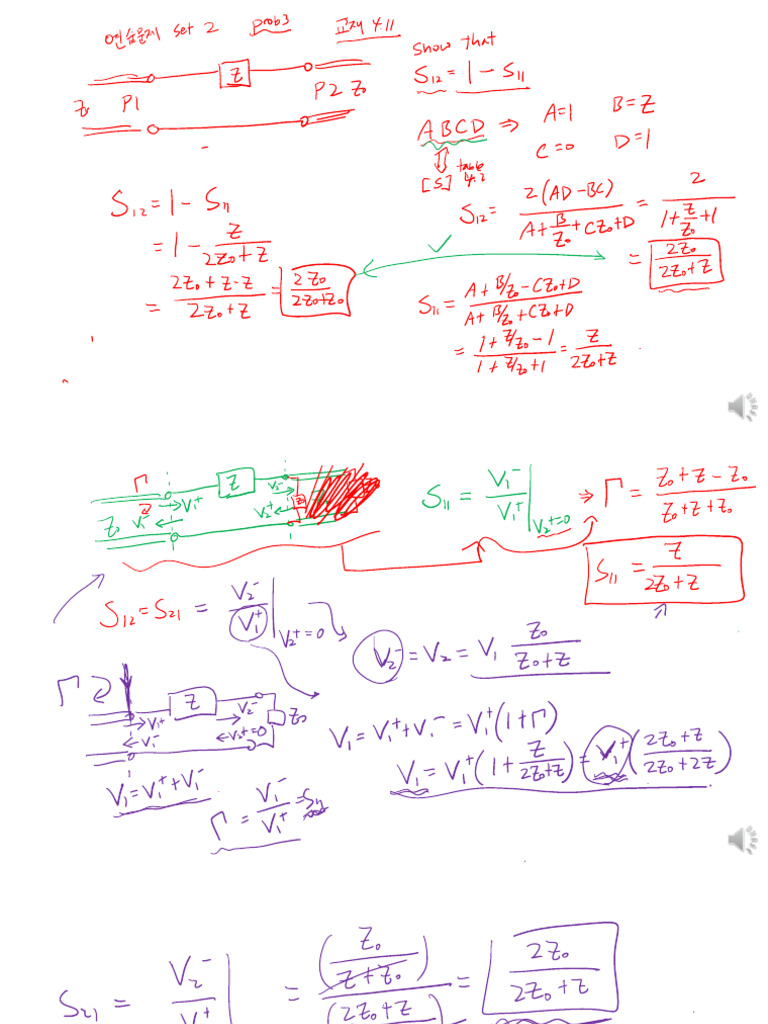 연습문제 set 2 prob3 교재 4.11
Show that
S12 = 1 - S11
Z
Z0 P1 P2 Z0
ABCD ⇒ A=1 B=Z
C=0 D=1
[S] table 4.2
S12 = 1 - S11
= 1 - Z / (2Z0+Z)
= (2Z0+Z-Z) / (2Z0+Z) = 2Z0 / (2Z0+Z0)
S12 = 2(AD-BC) / (A + B/Z0 + CZ0 + D) = 2 / (1 + Z/Z0 + 1)
= 2Z0 / (2Z0+Z)
S11 = (A + B/Z0 - CZ0 + D) / (A + B/Z0 + CZ0 + D)
= (1 + Z/Z0 - 1) / (1 + Z/Z0 + 1) = Z / (2Z0+Z)
Γ Z V2-
Z0 V1- V1+ V2+
S11 = V1- / V1+ | V2+=0 ⇒ Γ = (Z0+Z-Z0) / (Z0+Z+Z0)
S11 = Z / (2Z0+Z)
S12 = S21 = V2- / V1+ | V2+=0
V2- = V2 = V1 Z0 / (Z0+Z)
Γ Z V2- Z0
V1+ V1- V2+=0
V1 = V1+ + V1-
V1 = V1+ + V1- = V1+(1+Γ)
V1 = V1+(1 + Z / (2Z0+Z)) = V1+((2Z0+Z) / (2Z0+2Z))
Γ = V1- / V1+ = S11
S21 = V2- / V+ | = (Z0 / (Z+Z0)) / (2Z0+Z) = 2Z0 / (2Z0+Z)